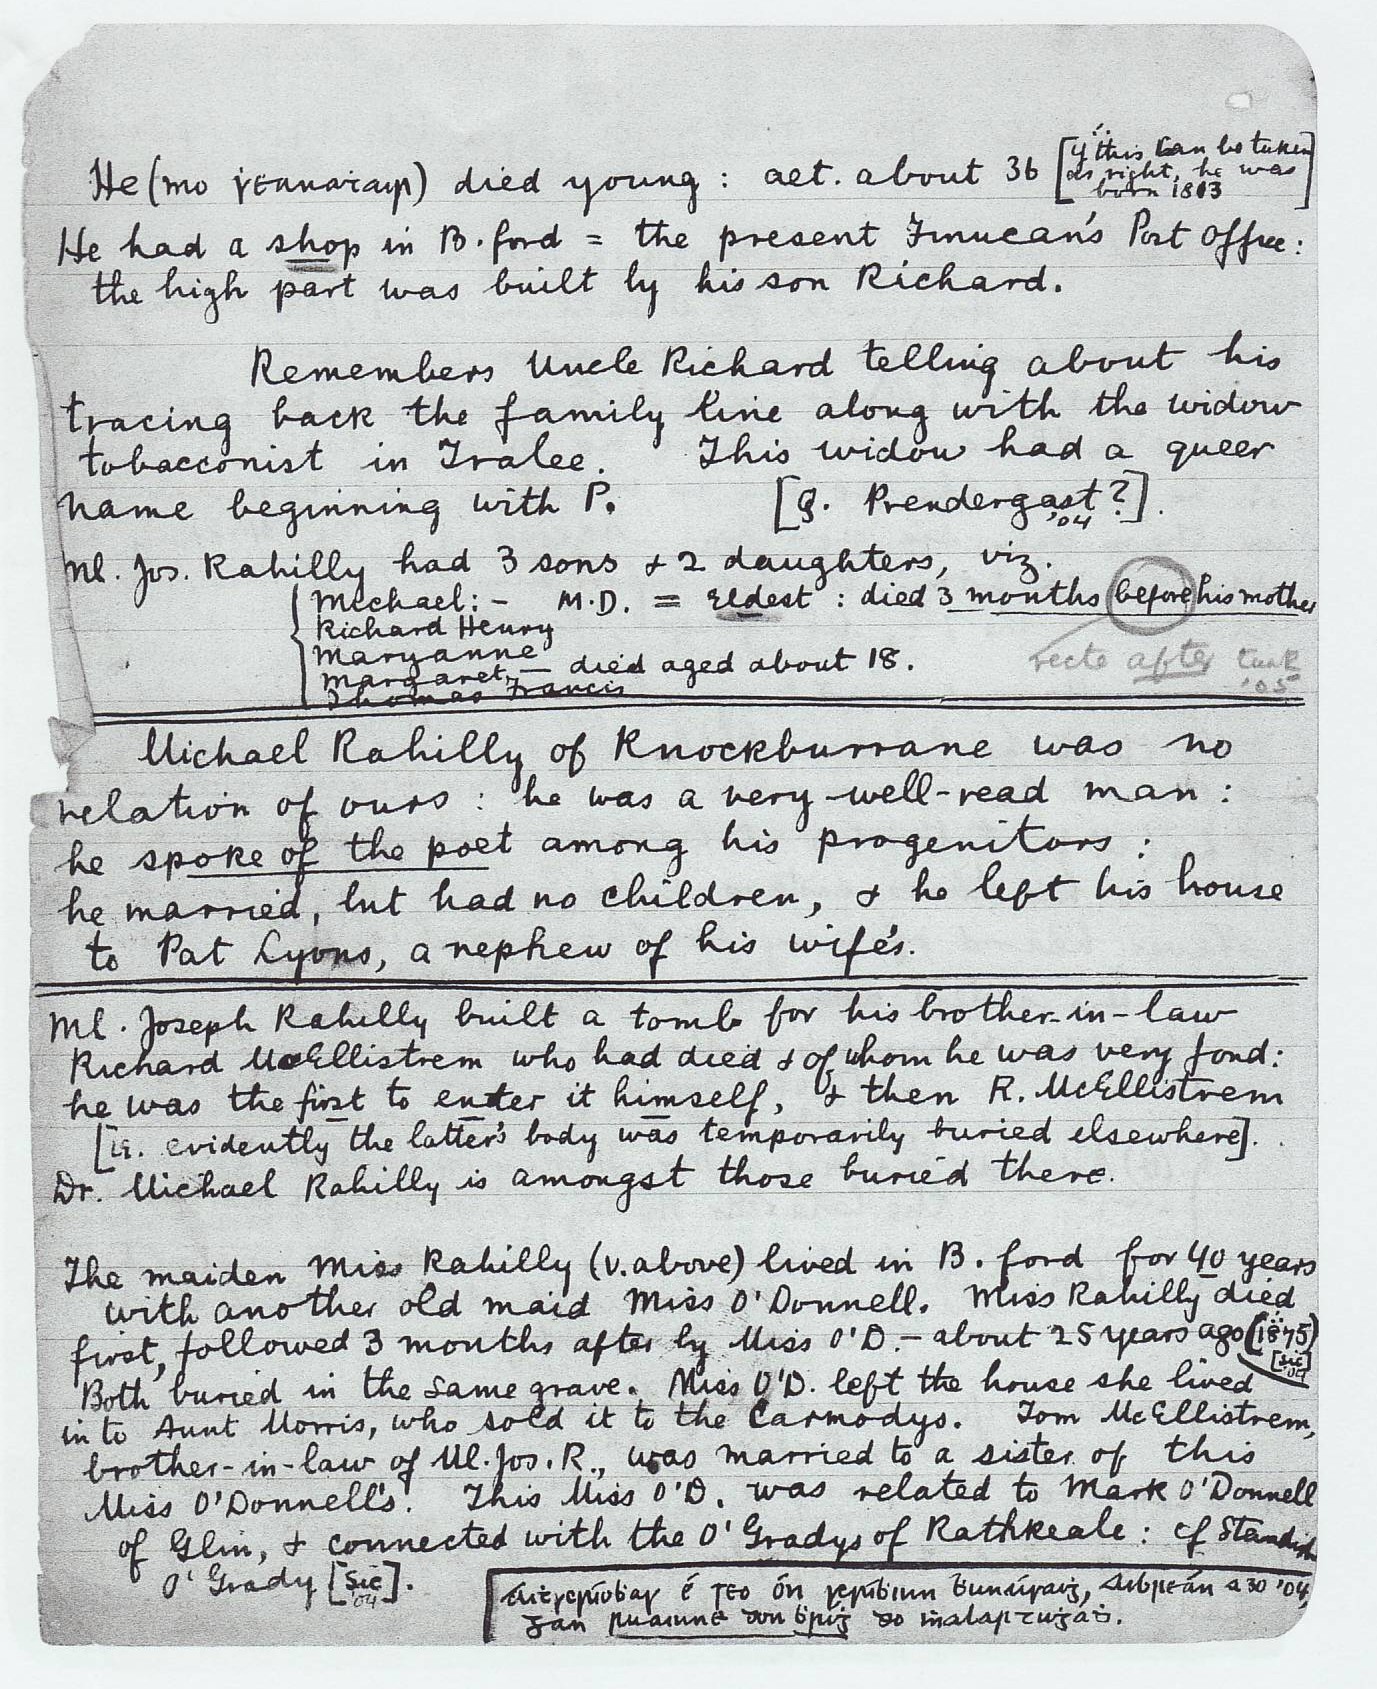 He (mo ṡeanaṫair) died young : aet. about 36 [if this can be taken
as right, he was
born 1813]
He had a shop in B.ford = the present Finucan's Post Office :
the high part was built by his son Richard.
Remembers Uncle Richard telling about his
tracing back the family line along with the widow
tobacconist in Tralee. This widow had a queer
name beginning with P. [Q. Prendergast? '04].
Ml. Jos. Rahilly had 3 sons & 2 daughters, viz.
Michael: - M.D. = Eldest : died 3 months before his mother
Richard Henry
Maryanne
Margaret, — died aged about 18. recte after
Thomas Francis '05
Michael Rahilly of Knockburrane was no
relation of ours : he was a very well-read man :
he spoke of the poet among his progenitors :
he married, but had no children, & he left his house
to Pat Lyons, a nephew of his wife's.
Ml. Joseph Rahilly built a tomb for his brother-in-law
Richard McEllistrem who had died & of whom he was very fond:
he was the first to enter it himself, & then R. McEllistrem
[i.e. evidently the latter's body was temporarily buried elsewhere].
Dr. Michael Rahilly is amongst those buried there.
The maiden Miss Rahilly (v. above) lived in B.ford for 40 years
with another old maid Miss O'Donnell. Miss Rahilly died
first, followed 3 months after by Miss O'D. - about 25 years ago (1875)
[sic '04]
Both buried in the same grave. Miss O'D. left the house she lived
in to Aunt Morris, who sold it to the Carmodys. Tom McEllistrem,
brother-in-law of Ml. Jos. R., was married to a sister of this
Miss O'Donnell's. This Miss O'D. was related to Mark O'Donnell
of Glin, & connected with the O'Gradys of Rathkeale : cf Standish
O'Grady [sic '04].
Aiṫscríoḃar é seo ón scríḃinn ḃunáiraiġ, Aibreán a 30 '04,
gan ruainne don ḃríġ do ṁalartuġaḋ.